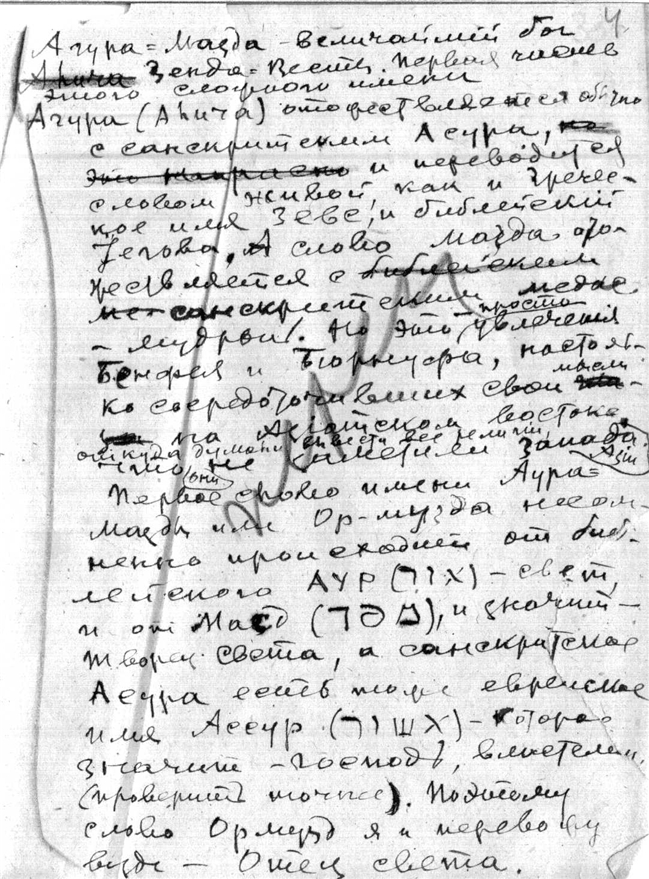 4.
Агура=Мазда – величайший бог
Ahura Зенда=Весты. Первая часть
этого сложного имени
Агура (Ahura) отождествляется обычно
с санскритским Асура, 
и переводится
словом живой, как и гречес-
кое имя Зевс, и библейский
Іегова, А слово мазда ото-
жествляется с библейским
санскритским медас
– мудрый. Но это просто увлечения
Бенфея и Бюрнуфа, настоль-
ко сосредоточивших свои мысли
на Азиатском востоке
откуда думали вывести все религии
что не заметили Запада Азии
они
Первое слово имени Аура=
мазды или Ор-музда несом-
ненно происходит от биб-
лейского АУР (אור) – свет,
и от Масд (מסד), и значит –
творец света, а санскритское
Асура есть тоже еврейское
имя Ассур (אשור) – которое
значит – господь, властелин.
(проверить точнее). Поэтому
слово Ормузд я и перевожу
везде – Отец света.